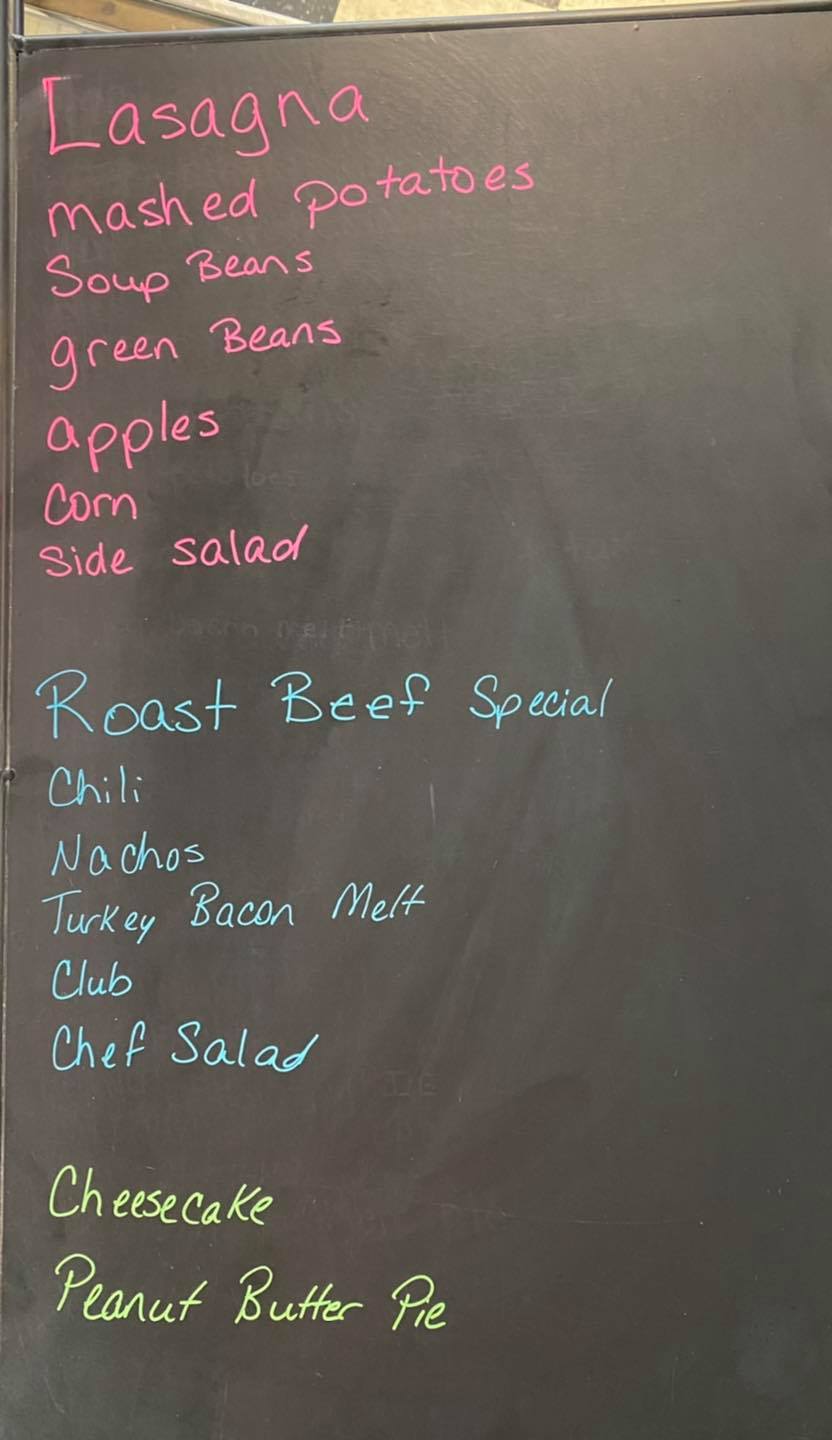 Lasagna
mashed potatoes
Soup Beans
green Beans
apples
Corn
Side salad
Roast Beef Special
Chili
Nachos
Turkey Bacon Melt
Club
Chef Salad
Cheesecake
Peanut Butter Pie